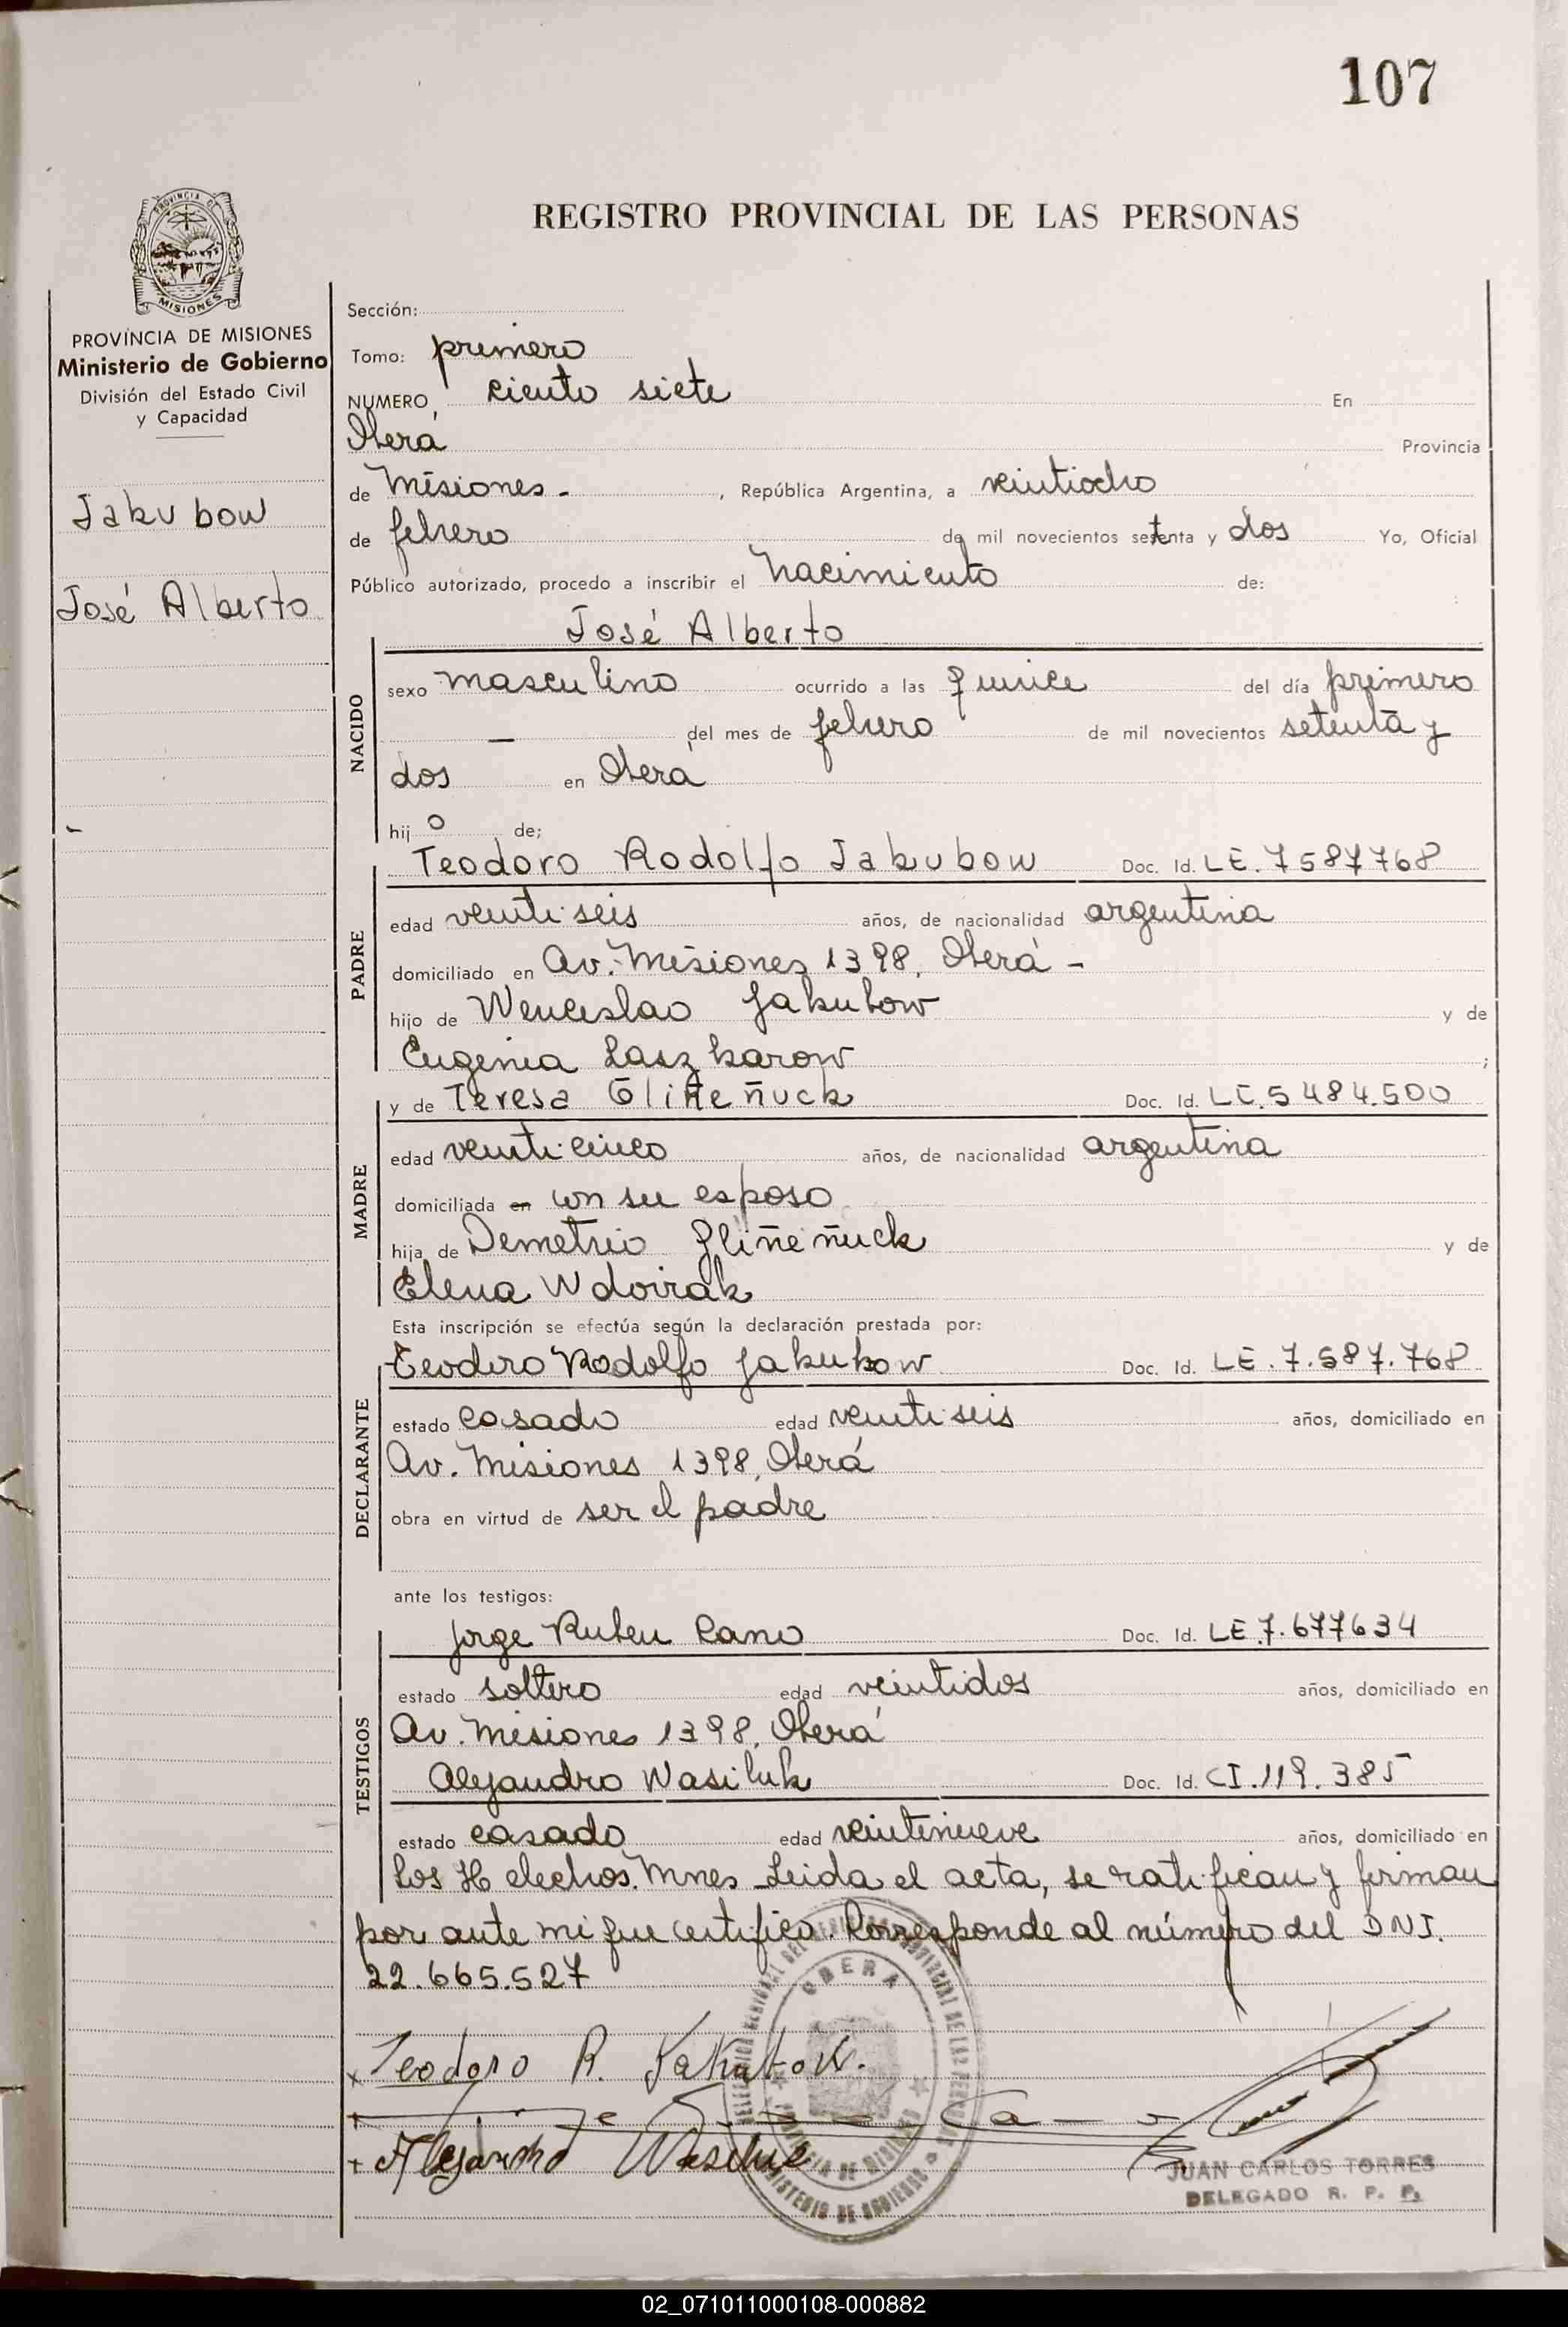 107
REGISTRO PROVINCIAL DE LAS PERSONAS
PROVINCIA DE
MISIONES
PROVINCIA DE MISIONES
Ministerio de Gobierno
División del Estado Civil
y Capacidad
Jakubow
José Alberto
Sección:
Tomo: primero
NUMERO, ciento siete En
Oberá Provincia
de Misiones - , República Argentina, a veintiocho
de febrero de mil novecientos setenta y dos Yo, Oficial
Público autorizado, procedo a inscribir el nacimiento de:
José Alberto
NACIDO
sexo masculino ocurrido a las quince del día primero
— del mes de febrero de mil novecientos setenta y
dos en Oberá
hijo de;
Teodoro Rodolfo Jakubow Doc. Id. LE. 7587768
PADRE
edad veintiseis años, de nacionalidad argentina
domiciliado en Av. Misiones 1398, Oberá -
hijo de Wenceslao Jakubow y de
Eugenia Laszkarow ;
y de Teresa Gliñeñuck Doc. Id. LC. 5484.500
MADRE
edad veinticinco años, de nacionalidad argentina
domiciliada en con su esposo
hija de Demetrio Gliñeñuck y de
Elena Wdoirak
Esta inscripción se efectúa según la declaración prestada por:
Teodoro Rodolfo Jakubow Doc. Id. LE. 7.587.768
DECLARANTE
estado casado edad veintiseis años, domiciliado en
Av. Misiones 1398, Oberá
obra en virtud de ser el padre
ante los testigos:
Jorge Ruben Cano Doc. Id. LE 7.677634
TESTIGOS
estado soltero edad veintidos años, domiciliado en
Av. Misiones 1398, Oberá
Alejandro Wasiluk Doc. Id. CI. 119.385
estado casado edad veintinueve años, domiciliado en
Los Helechos. Mnes. Leida el acta, se ratifican y firman
por ante mi que certifico. Corresponde al número del DNI.
22.665.527
OBERA
PROVINCIA DE MISIONES
MINISTERIO DE GOBIERNO
Teodoro R. Jakubow.
Alejandro Wasiluk
JUAN CARLOS TORRES
DELEGADO R. P. P.
02_071011000108-000882